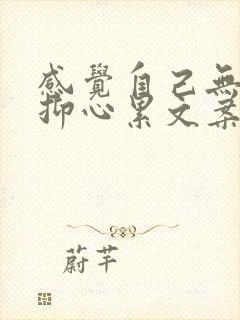 感覺自己無
抑心累文案
蔚芊